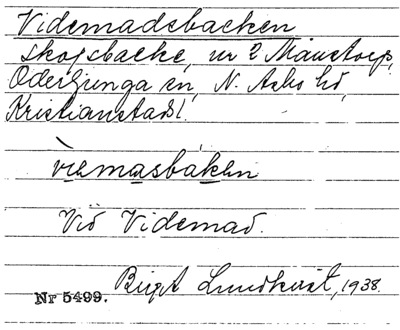 Videmadsbacken
Skogsbacke, nr 2 Månstorp,
Oderljunga sn, N. Åsbo hd,
Kristianstads l.
vḛmasbákan
Vid Videmad.
Birgit Lundkvist, 1938.
Nr 5499.